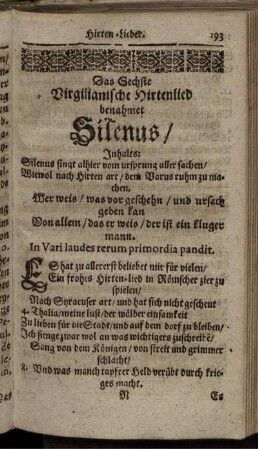 Hirten-Lieder. 193
Das Sechste
Virgilianische Hirtenlied
benahmet
Silenus/
Inhalts:
Silenus singt alhier vom ursprung aller sachen/
Wiewol nach Hirten art/ dem Varus ruhm zu ma-
chen.
Wer weis/ was vor geschehn/ und ursach
geben kan
Von allem/ das er weis/ der ist ein kluger
mann.
In Vari laudes rerum primordia pandit.
ES hat zu allererst beliebet mir für vielen/
Ein frohes Hirten-lied in Römscher zier zu
spielen/
Nach Syracuser art/ und hat sich nicht gescheut
4. Thalia/ meine lust/ der wälder einsamkeit
Zu lieben für die Stadt/ und auf dem dorf zu bleiben/
Ich singe zwar wol an was wichtigers zuschreibē/
Sang von den Königen/ von streit und grimmer
schlacht/
2. Und was manch tapfrer Held verübt durch krie-
ges macht.
N Es